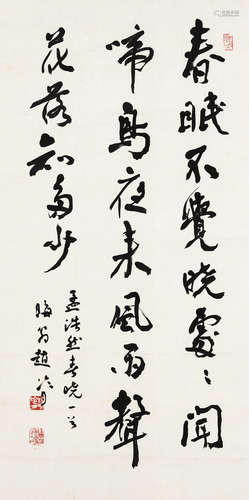 春眠不覺曉處〻聞
啼鳥夜来風雨聲
花落知多少
孟浩然春曉一首
晦翁趙冷月